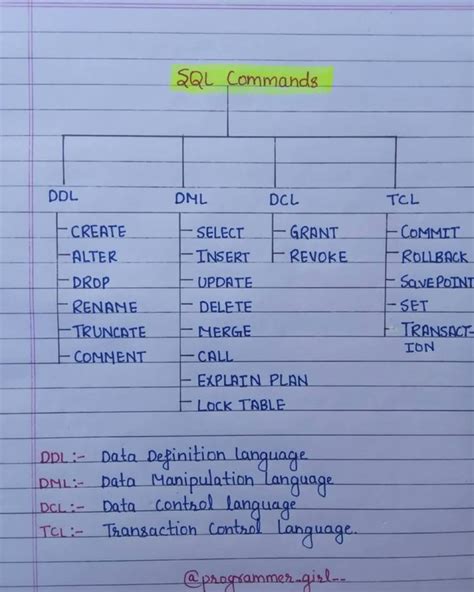 SQL Commands
DDL DML DCL TCL
CREATE SELECT GRANT COMMIT
ALTER INSERT REVOKE ROLLBACK
DROP UPDATE SAVEPOINT
RENAME DELETE SET
TRUNCATE MERGE TRANSACT-
COMMENT CALL ION
EXPLAIN PLAN
LOCK TABLE
DDL :- Data Definition language
DML :- Data Manipulation language
DCL :- Data Control language
TCL :- Transaction Control Language.
@programmer_girl__